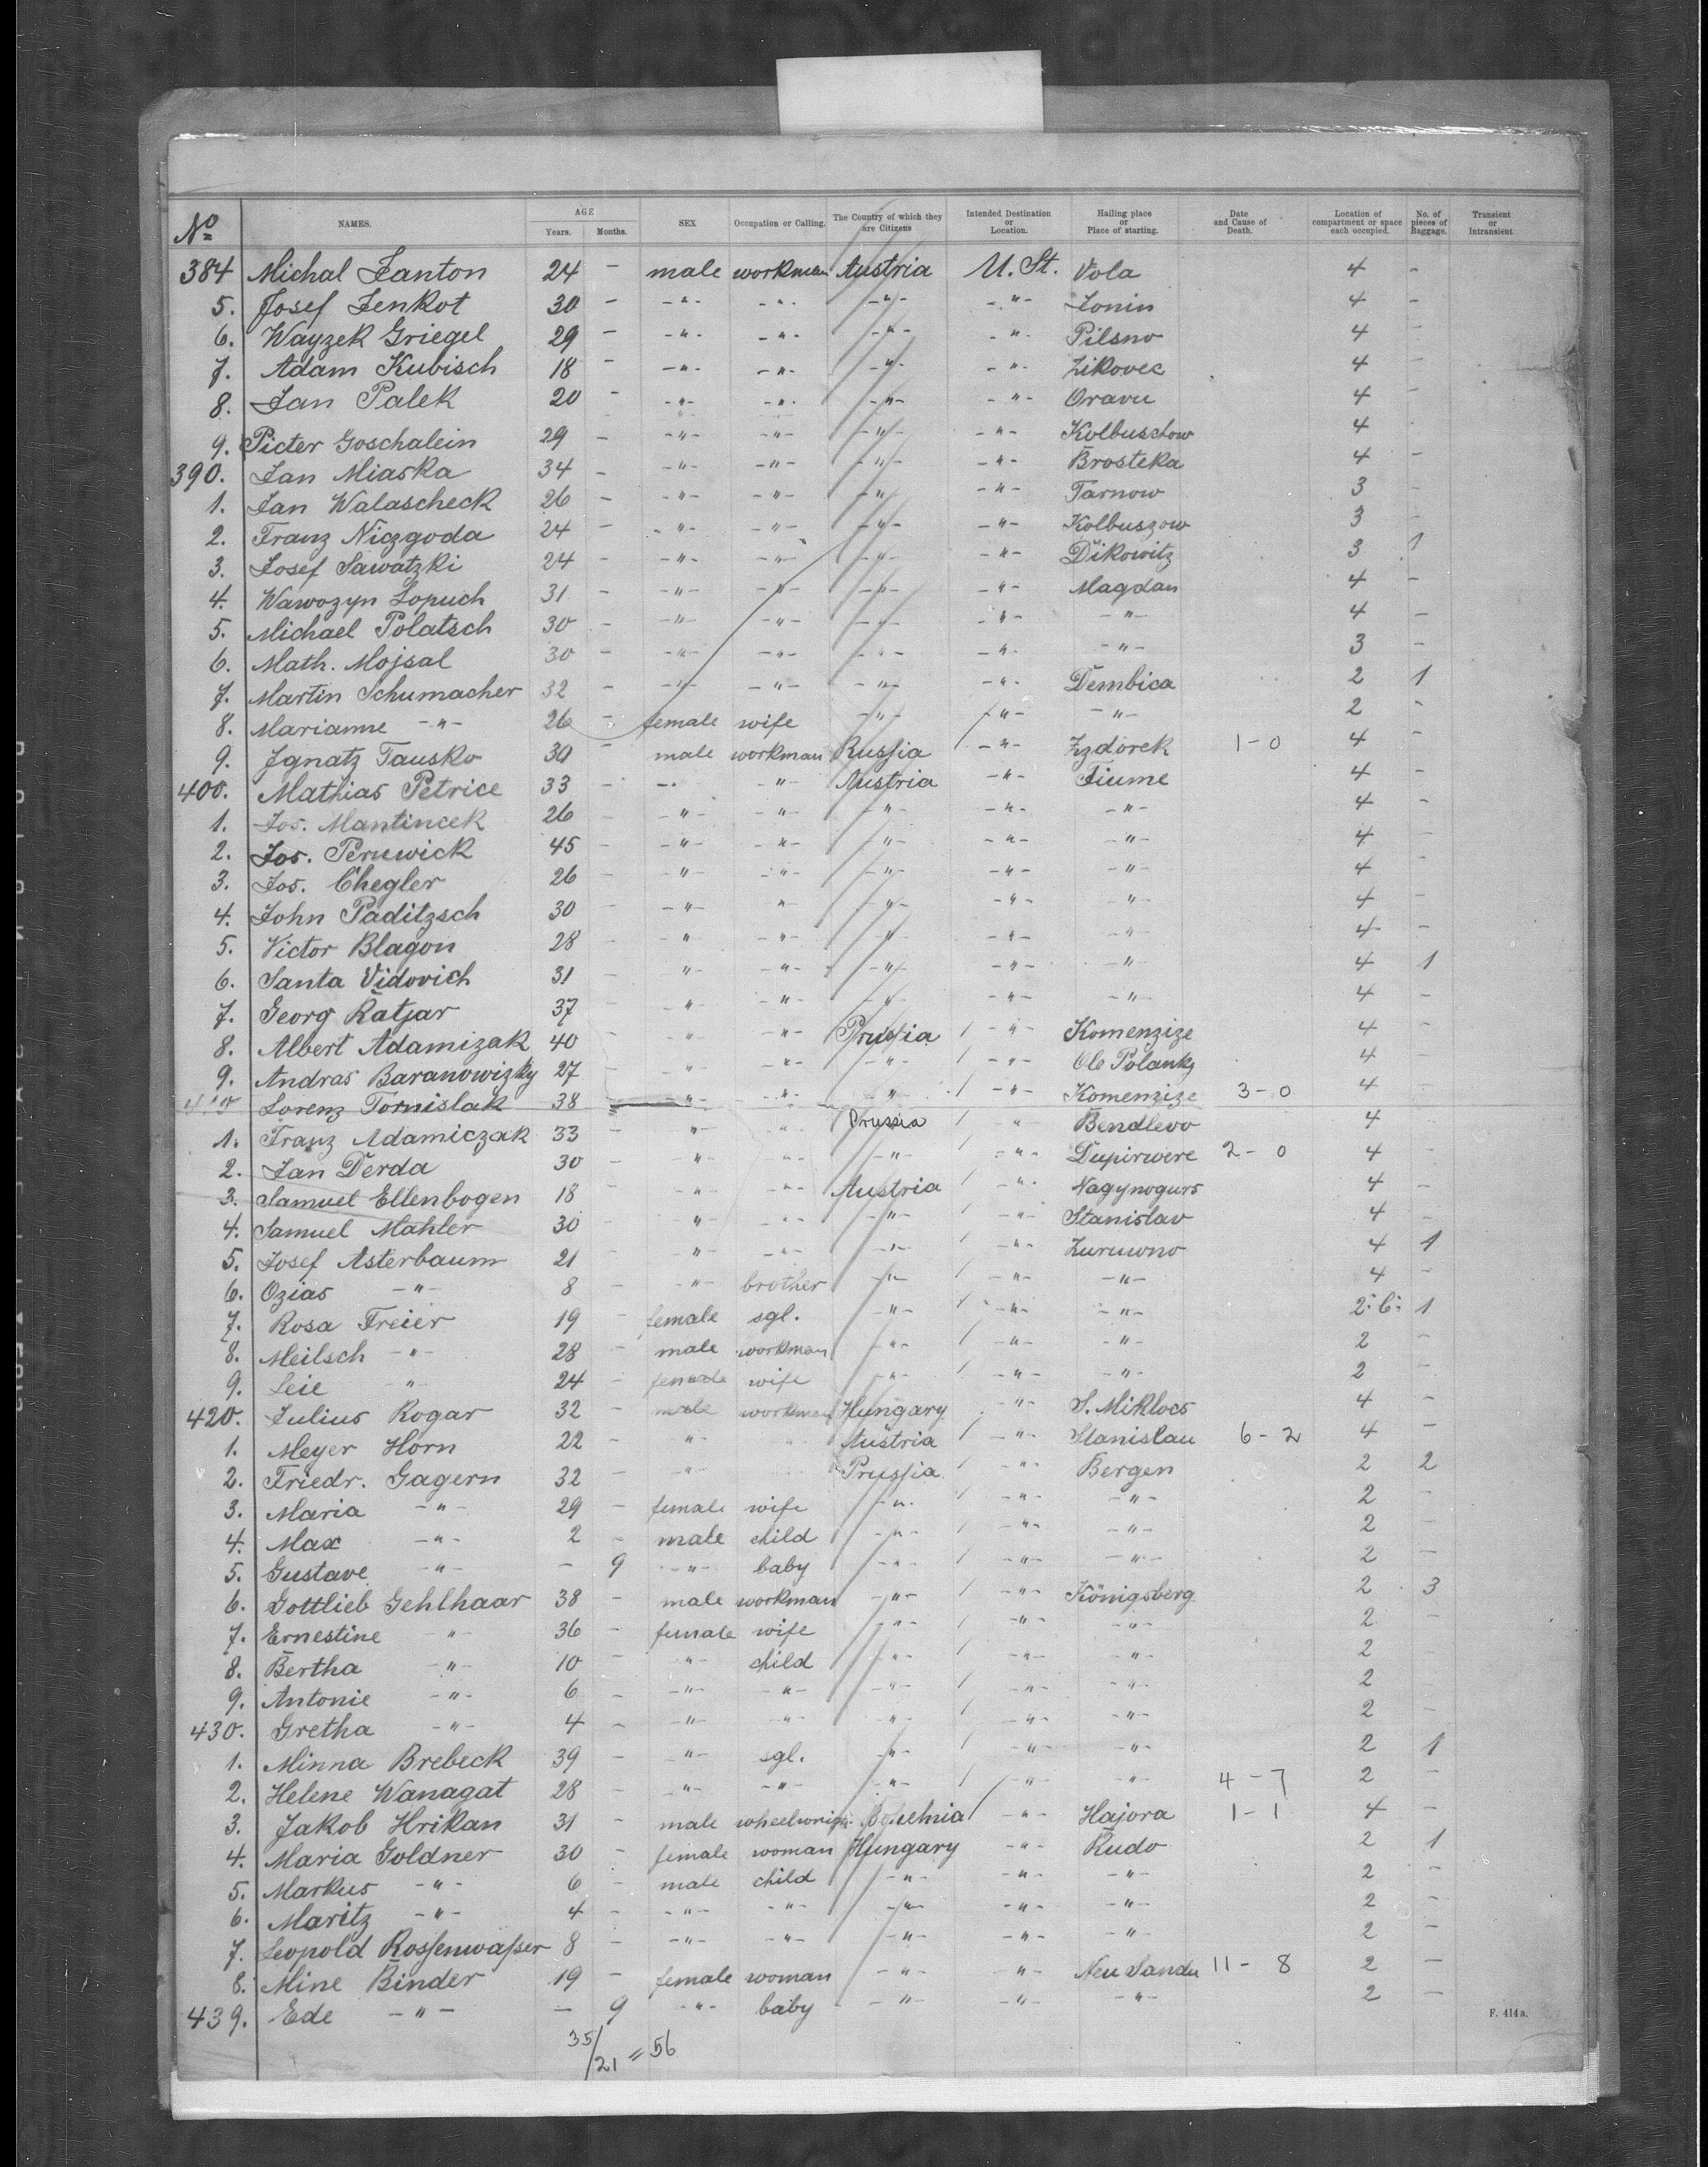 No NAMES. AGE Years. Months. SEX Occupation or Calling. The Country of which they are Citizens Intended Destination or Location. Hailing place or Place of starting. Date and Cause of Death. Location of compartment or space each occupied. No. of pieces of Baggage. Transient or Intransient.
384 Michal Janton 24 - male workman Austria U. St. Vola 4 -
5. Josef Jenkot 30 - -"- -"- -"- -"- Lonin 4 -
6. Wayzek Griegel 29 - -"- -"- -"- -"- Pilsno 4 -
7. Adam Kubisch 18 - -"- -"- -"- -"- Zikovec 4 -
8. Jan Palek 20 - -"- -"- -"- -"- Oravu 4 -
9. Picter Goschalein 29 - -"- -"- -"- -"- Kolbuschow 4 -
390. Jan Miaska 34 - -"- -"- -"- -"- Brosteka 4 -
1. Jan Walascheck 26 - -"- -"- -"- -"- Tarnow 3 -
2. Franz Niczgoda 24 - -"- -"- -"- -"- Kolbuszow 3 -
3. Josef Sawatzki 24 - -"- -"- -"- -"- Dikowitz 3 1
4. Wawozyn Lopuch 31 - -"- -"- -"- -"- Magdan 4 -
5. Michael Polatsch 30 - -"- -"- -"- -"- -"- 4 -
6. Math. Mojsal 30 - -"- -"- -"- -"- -"- 3 -
7. Martin Schumacher 32 - -"- -"- -"- -"- Dembica 2 1
8. Marianne -"- 26 - female wife -"- -"- -"- 2 -
9. Ignatz Tausko 30 - male workman Russia -"- Zzdorek 1-0 4 -
400. Mathias Petrice 33 - -"- -"- Austria -"- Fiume 4 -
1. Jos. Mantincek 26 - -"- -"- -"- -"- -"- 4 -
2. Jos. Peruwick 45 - -"- -"- -"- -"- -"- 4 -
3. Jos. Chegler 26 - -"- -"- -"- -"- -"- 4 -
4. John Paditzsch 30 - -"- -"- -"- -"- -"- 4 -
5. Victor Blagon 28 - -"- -"- -"- -"- -"- 4 -
6. Santa Vidovich 31 - -"- -"- -"- -"- -"- 4 1
7. Georg Ratjar 37 - -"- -"- -"- -"- -"- 4 -
8. Albert Adamizak 40 - -"- -"- Prussia -"- Komenzize 4 -
9. Andras Baranowizky 27 - -"- -"- -"- -"- Ole Polanky 4 -
410 Lorenz Tornislak 38 - -"- -"- -"- -"- Komenzize 3-0 4 -
1. Franz Adamiczak 33 - -"- -"- Prussia -"- Bendlevo 4 -
2. Jan Derda 30 - -"- -"- -"- -"- Dupirwere 2-0 4 -
3. Samuel Ellenbogen 18 - -"- -"- Austria -"- Nagynogurs 4 -
4. Samuel Mahler 30 - -"- -"- -"- -"- Stanislav 4 -
5. Josef Asterbaum 21 - -"- -"- -"- -"- Zuruwno 4 1
6. Ozias -"- 8 - -"- brother -"- -"- -"- 4 -
7. Rosa Freier 19 - female sgl. -"- -"- -"- 2 1
8. Meilsch -"- 28 - male workman -"- -"- -"- 2 -
9. Leie -"- 24 - female wife -"- -"- -"- 2 -
420. Julius Rogar 32 - male workman Hungary -"- S. Miklocs 4 -
1. Meyer Horn 22 - -"- Austria -"- Stanislau 6-2 4 -
2. Friedr. Gagern 32 - -"- Prussia -"- Bergen 2 2
3. Maria -"- 29 - female wife -"- -"- -"- 2 -
4. Max -"- 2 - male child -"- -"- -"- 2 -
5. Gustave -"- - 9 -"- baby -"- -"- -"- 2 -
6. Gottlieb Gehlhaar 38 - male workman -"- -"- Königsberg 2 3
7. Ernestine -"- 36 - female wife -"- -"- -"- 2 -
8. Bertha -"- 10 - -"- child -"- -"- -"- 2 -
9. Antonie -"- 6 - -"- -"- -"- -"- -"- 2 -
430. Gretha -"- 4 - -"- -"- -"- -"- -"- 2 -
1. Minna Brebeck 39 - -"- sgl. -"- -"- -"- 2 1
2. Helene Wanagat 28 - -"- -"- -"- -"- -"- 4-7 2 -
3. Jakob Hrikan 31 - male Bohemia -"- Hajora 1-1 4 -
4. Maria Goldner 30 - female woman Hungary -"- Rudo 2 1
5. Markus -"- 6 - male child -"- -"- -"- 2 -
6. Maritz -"- 4 - -"- -"- -"- -"- -"- 2 -
7. Leopold Rossenwasser 8 - -"- -"- -"- -"- -"- 2 -
8. Mine Binder 19 - female woman -"- -"- Neu Sandu 11-8 2 -
439. Ede -"- - 9 -"- baby -"- -"- -"- 2 -
F. 414a.
35/21 = 56